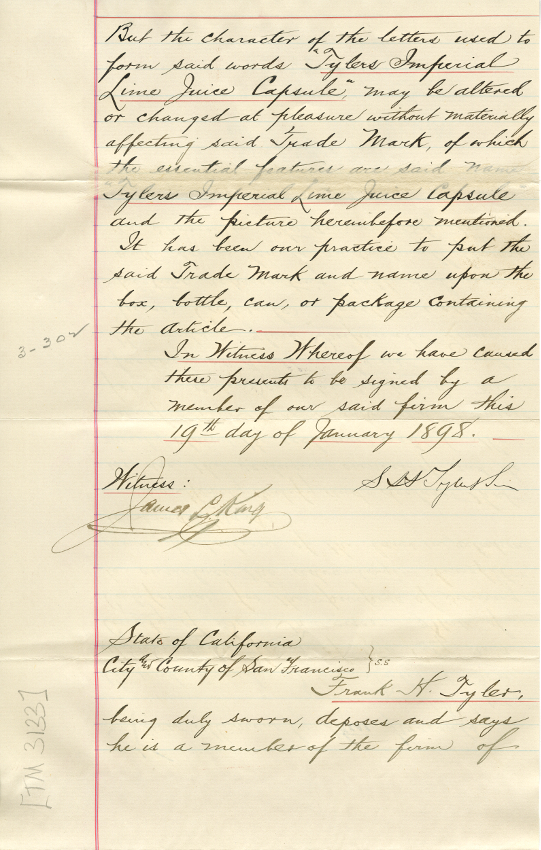 But the character of the letters used to
form said words "Tylers Imperial
Lime Juice Capsule", may be altered
or changed at pleasure without materially
affecting said Trade Mark, of which
the essential features are said name
"Tylers Imperial Lime Juice Capsule
and the picture hereinbefore mentioned.
It has been our practice to put the
said Trade Mark and name upon the
box, bottle, can, or package containing
the article.
3-302
In Witness Whereof we have caused
these presents to be signed by a
member of our said firm this
19th day of January 1898.
Witness:
S S H Tyler & Son
James L King
State of California
City and County of San Francisco } ss
Frank H. Tyler,
being duly sworn, deposes and says
he is a member of the firm of
[TM 3133]